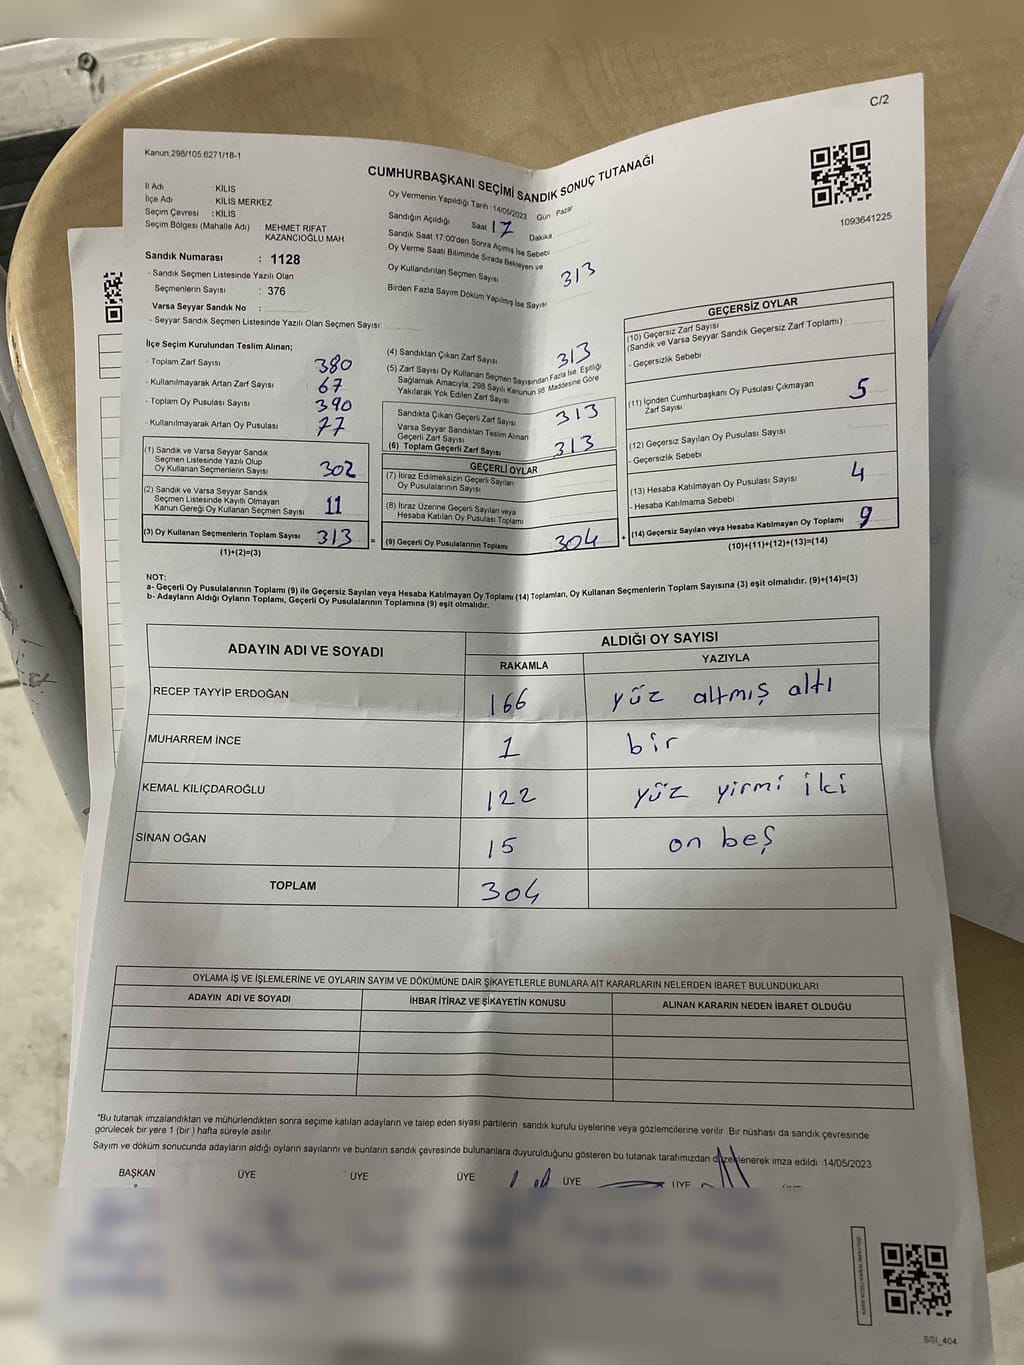 C/2
Kanun:298/105.6271/18-1
CUMHURBAŞKANI SEÇİMİ SANDIK SONUÇ TUTANAĞI
1093641225
İl Adı KİLİS
İlçe Adı : KİLİS MERKEZ
Seçim Çevresi : KİLİS
Seçim Bölgesi (Mahalle Adı) : MEHMET RIFAT
KAZANCIOĞLU MAH.
Sandık Numarası : 1128
- Sandık Seçmen Listesinde Yazılı Olan
Seçmenlerin Sayısı : 376
Varsa Seyyar Sandık No :
- Seyyar Sandık Seçmen Listesinde Yazılı Olan Seçmen Sayısı:
Oy Vermenin Yapıldığı Tarih :14/05/2023 Gün : Pazar
Sandığın Açıldığı Saat 17 Dakika
Sandık Saat 17:00'den Sonra Açılmış İse Sebebi
Oy Verme Saati Bitiminde Sırada Bekleyen ve
Oy Kullandırılan Seçmen Sayısı 313
Birden Fazla Sayım Döküm Yapılmış İse Sayısı
İlçe Seçim Kurulundan Teslim Alınan;
- Toplam Zarf Sayısı 380
- Kullanılmayarak Artan Zarf Sayısı 67
- Toplam Oy Pusulası Sayısı 390
- Kullanılmayarak Artan Oy Pusulası 77
(1) Sandık ve Varsa Seyyar Sandık
Seçmen Listesinde Yazılı Olup
Oy Kullanan Seçmenlerin Sayısı 302
(2) Sandık ve Varsa Seyyar Sandık
Seçmen Listesinde Kayıtlı Olmayan
Kanun Gereği Oy Kullanan Seçmen Sayısı 11
(3) Oy Kullanan Seçmenlerin Toplam Sayısı 313 =
(1)+(2)=(3)
(4) Sandıktan Çıkan Zarf Sayısı 313
(5) Zarf Sayısı Oy Kullanan Seçmen Sayısından Fazla İse, Eşitliği
Sağlamak Amacıyla, 298 Sayılı Kanunun 98. Maddesine Göre
Yakılarak Yok Edilen Zarf Sayısı
Sandıkta Çıkan Geçerli Zarf Sayısı 313
Varsa Seyyar Sandıktan Teslim Alınan
Geçerli Zarf Sayısı
(6) Toplam Geçerli Zarf Sayısı 313
GEÇERLİ OYLAR
(7) İtiraz Edilmeksizin Geçerli Sayılan
Oy Pusulalarının Sayısı
(8) İtiraz Üzerine Geçerli Sayılan veya
Hesaba Katılan Oy Pusulası Toplamı
(9) Geçerli Oy Pusulalarının Toplamı 304 +
GEÇERSİZ OYLAR
(10) Geçersiz Zarf Sayısı
(Sandık ve Varsa Seyyar Sandık Geçersiz Zarf Toplamı) :
- Geçersizlik Sebebi :
(11) İçinden Cumhurbaşkanı Oy Pusulası Çıkmayan
Zarf Sayısı 5
(12) Geçersiz Sayılan Oy Pusulası Sayısı
- Geçersizlik Sebebi
(13) Hesaba Katılmayan Oy Pusulası Sayısı 4
- Hesaba Katılmama Sebebi :
(14) Geçersiz Sayılan veya Hesaba Katılmayan Oy Toplamı 9
(10)+(11)+(12)+(13)=(14)
NOT:
a- Geçerli Oy Pusulalarının Toplamı (9) ile Geçersiz Sayılan veya Hesaba Katılmayan Oy Toplamı (14) Toplamları, Oy Kullanan Seçmenlerin Toplam Sayısına (3) eşit olmalıdır. (9)+(14)=(3)
b- Adayların Aldığı Oyların Toplamı, Geçerli Oy Pusulalarının Toplamına (9) eşit olmalıdır.
ADAYIN ADI VE SOYADI ALDIĞI OY SAYISI
RAKAMLA YAZIYLA
RECEP TAYYİP ERDOĞAN 166 yüz altmış altı
MUHARREM İNCE 1 bir
KEMAL KILIÇDAROĞLU 122 yüz yirmi iki
SİNAN OĞAN 15 on beş
TOPLAM 304
OYLAMA İŞ VE İŞLEMLERİNE VE OYLARIN SAYIM VE DÖKÜMÜNE DAİR ŞİKAYETLERLE BUNLARA AİT KARARLARIN NELERDEN İBARET BULUNDUKLARI
ADAYIN ADI VE SOYADI İHBAR İTİRAZ VE ŞİKAYETİN KONUSU ALINAN KARARIN NEDEN İBARET OLDUĞU
*Bu tutanak imzalandıktan ve mühürlendikten sonra seçime katılan adayların ve talep eden siyasi partilerin sandık kurulu üyelerine veya gözlemcilerine verilir. Bir nüshası da sandık çevresinde
görülecek bir yere 1 (bir ) hafta süreyle asılır.
Sayım ve döküm sonucunda adayların aldığı oyların sayılarını ve bunların sandık çevresinde bulunanlara duyurulduğunu gösteren bu tutanak tarafımızdan düzenlenerek imza edildi. 14/05/2023
BAŞKAN ÜYE ÜYE ÜYE ÜYE ÜYE
SSI_404